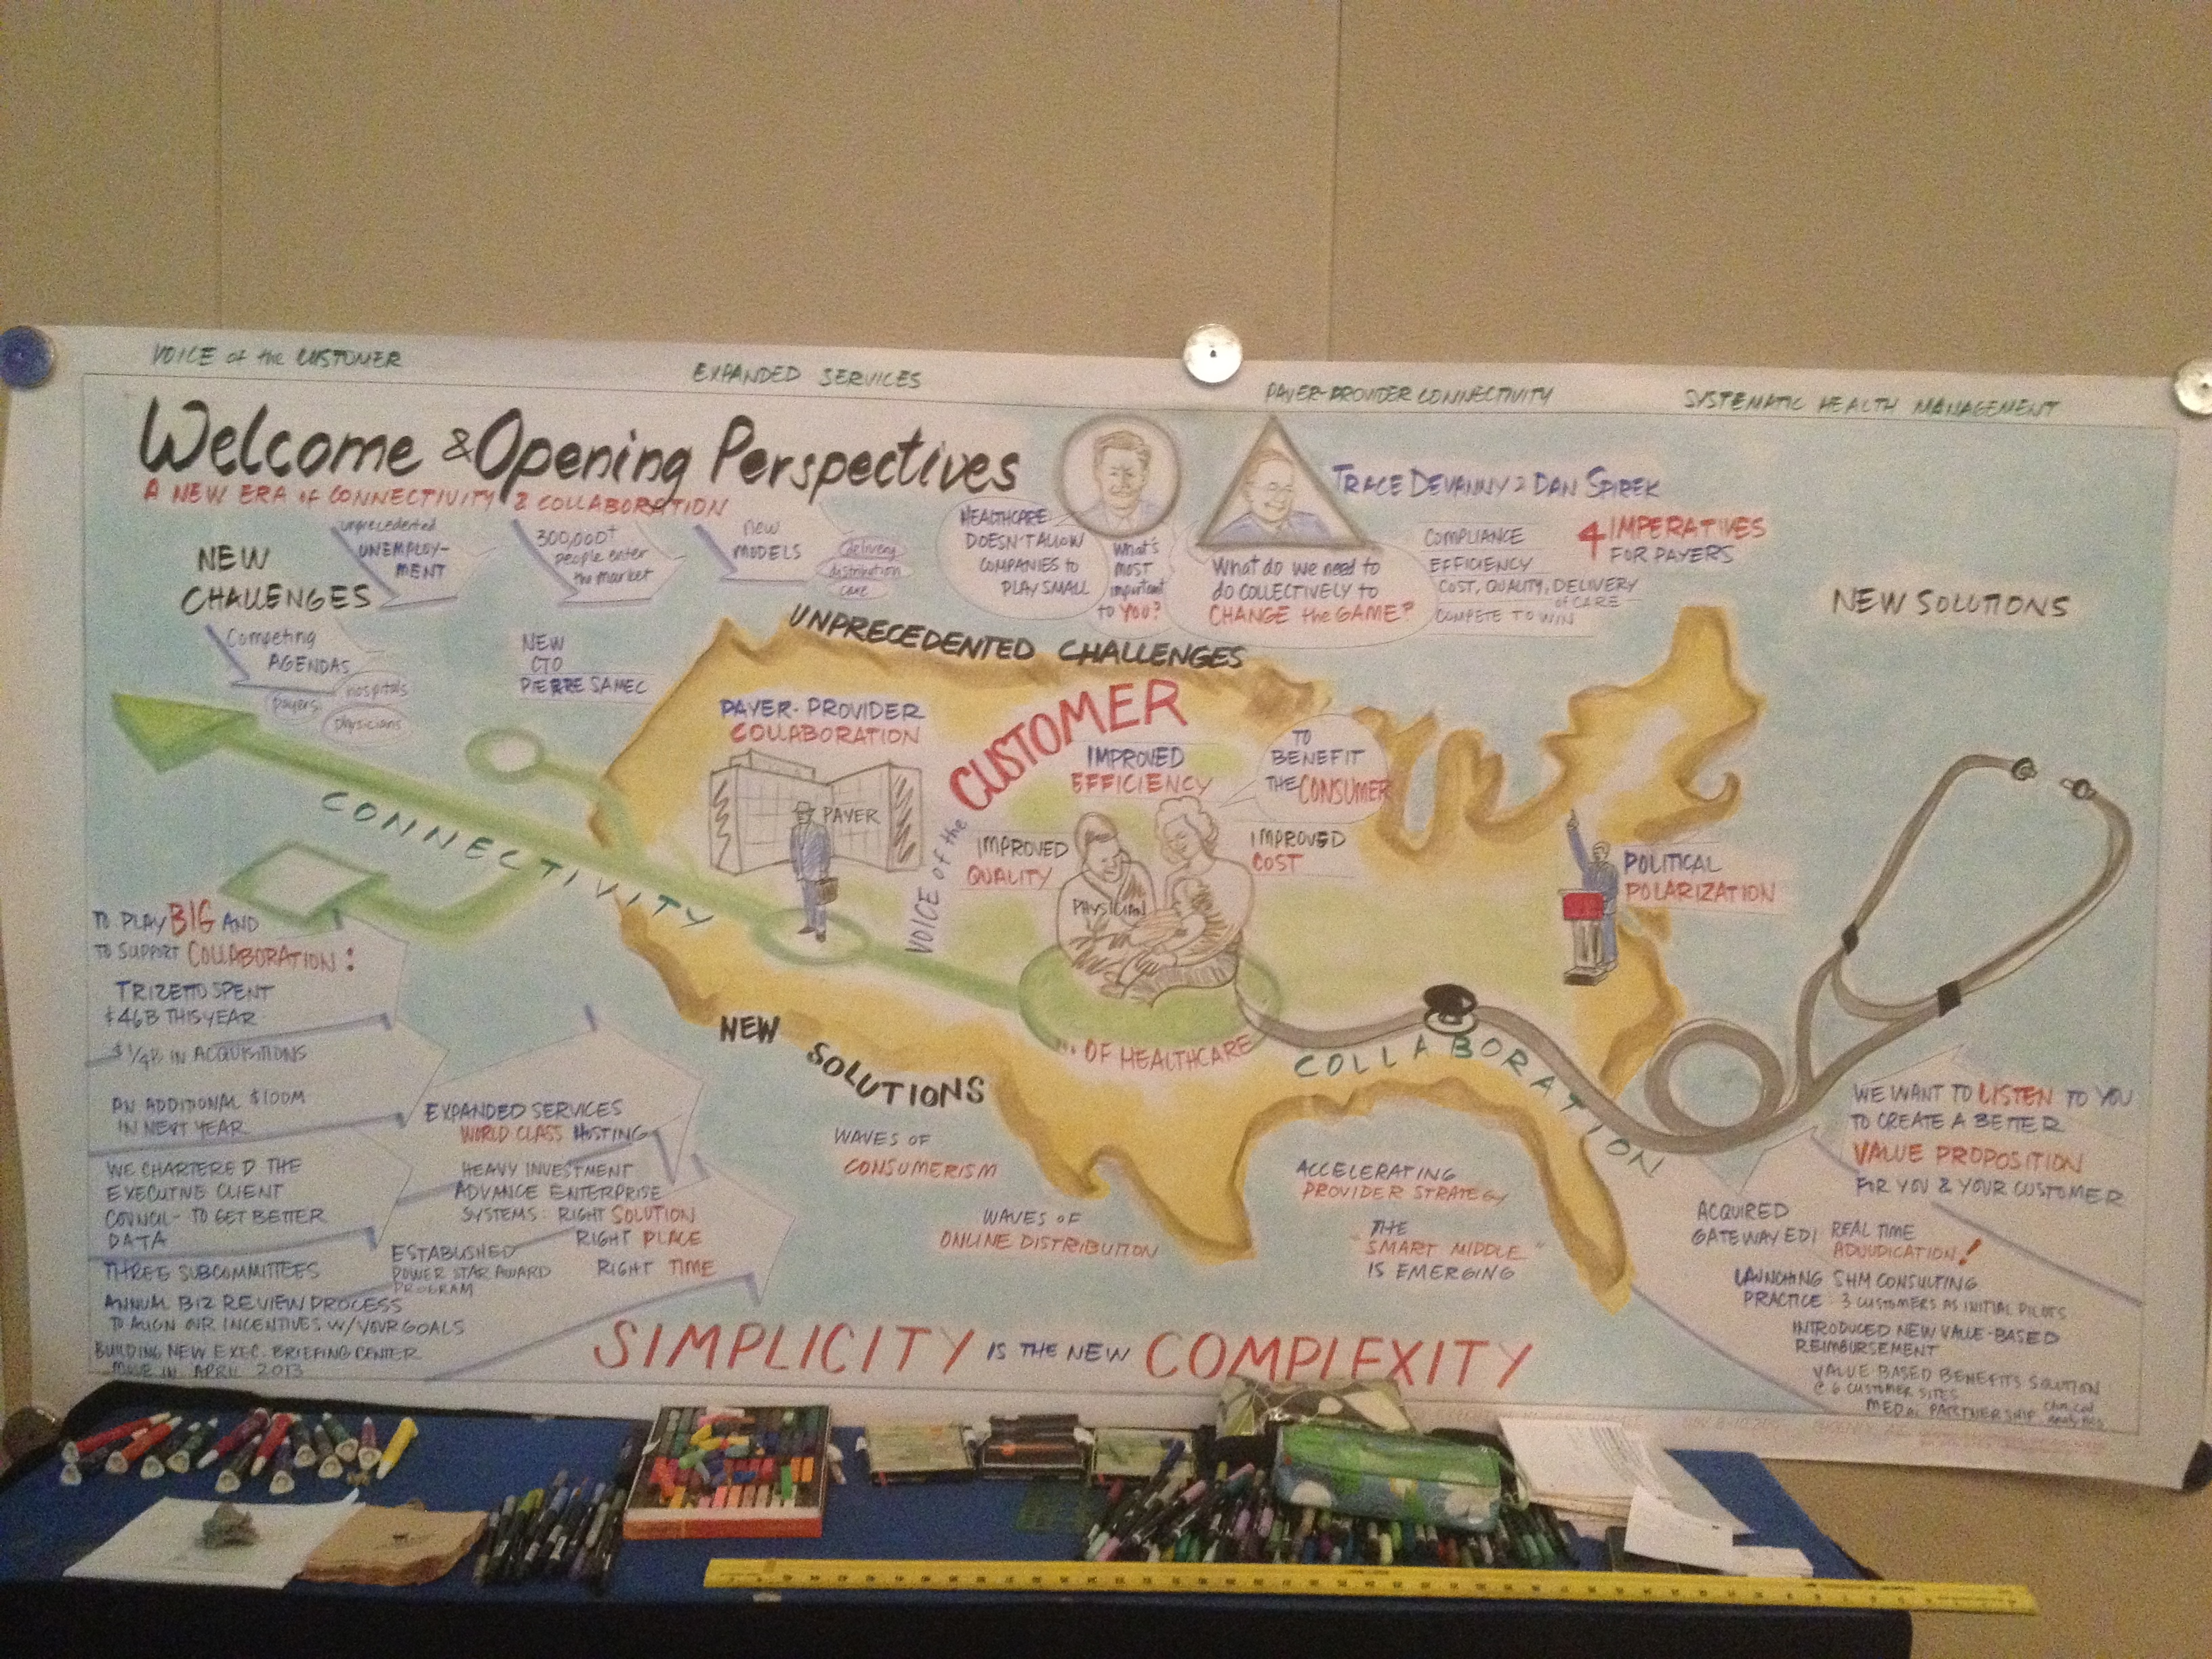 VOICE of the CUSTOMER
EXPANDED SERVICES
PAYER-PROVIDER CONNECTIVITY
SYSTEMATIC HEALTH MANAGEMENT
Welcome & Opening Perspectives
A NEW ERA of CONNECTIVITY & COLLABORATION
TRACE DEVANNY & DAN SPIREK
NEW
CHALLENGES
unprecedented
UNEMPLOY-
MENT
300,000+
people enter
the market
new
MODELS
delivery
distribution
care
HEALTHCARE
DOESN'T ALLOW
COMPANIES to
PLAY SMALL
What's
most
important
to YOU?
What do we need to
do COLLECTIVELY to
CHANGE the GAME?
COMPLIANCE
EFFICIENCY
COST, QUALITY, DELIVERY
of CARE
COMPETE TO WIN
4 IMPERATIVES
FOR PAYERS
NEW SOLUTIONS
Competing
AGENDAS
payers
hospitals
physicians
NEW
CTO
PIERRE SAMEC
UNPRECEDENTED CHALLENGES
PAYER-PROVIDER
COLLABORATION
PAYER
VOICE of the
CUSTOMER
IMPROVED
EFFICIENCY
TO
BENEFIT
THE CONSUMER
IMPROVED
QUALITY
IMPROVED
COST
PHYSICIAN
POLITICAL
POLARIZATION
CONNECTIVITY
... OF HEALTHCARE
COLLABORATION
NEW
SOLUTIONS
TO PLAY BIG AND
TO SUPPORT COLLABORATION:
TRIZETTO SPENT
$46B THIS YEAR
$1/4B IN ACQUISITIONS
AN ADDITIONAL $100M
IN NEXT YEAR
WE CHARTERED THE
EXECUTIVE CLIENT
COUNCIL - TO GET BETTER
DATA
THREE SUBCOMMITTEES
ANNUAL BIZ REVIEW PROCESS
TO ALIGN OUR INCENTIVES W/YOUR GOALS
BUILDING NEW EXEC. BRIEFING CENTER
MOVE IN APRIL 2013
EXPANDED SERVICES
WORLD CLASS HOSTING
HEAVY INVESTMENT
ADVANCE ENTERPRISE
SYSTEMS: RIGHT SOLUTION
RIGHT PLACE
RIGHT TIME
ESTABLISHED
POWER STAR AWARD
PROGRAM
WAVES OF
CONSUMERISM
WAVES OF
ONLINE DISTRIBUTION
ACCELERATING
PROVIDER STRATEGY
THE
"SMART MIDDLE"
IS EMERGING
WE WANT TO LISTEN TO YOU
TO CREATE A BETTER
VALUE PROPOSITION
FOR YOU & YOUR CUSTOMER
ACQUIRED
GATEWAY EDI
REAL TIME
ADJUDICATION!
LAUNCHING SHM CONSULTING
PRACTICE: 3 CUSTOMERS AS INITIAL PILOTS
INTRODUCED NEW VALUE-BASED
REIMBURSEMENT
VALUE BASED BENEFITS SOLUTION
@ 6 CUSTOMER SITES
PARTNERSHIP
SIMPLICITY IS THE NEW COMPLEXITY